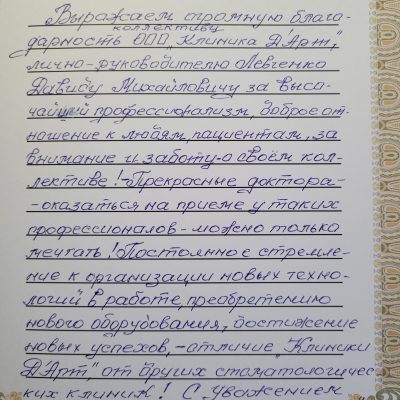 Выражаем огромную благо-
коллективу
дарность ООО „Клиника Д'Арт",
лично-руководителю Левченко
Давиду Михайловичу за высо-
чайший профессионализм, доброе от-
ношение к людям, пациентам, за
внимание и заботу-о своём кол-
лективе! Прекрасные доктора-
-оказаться на приеме у таких
профессионалов - можно только
мечтать! Постоянное стремле-
ние к организации новых техно-
логий в работе, преобретению
нового оборудования, достижение
новых успехов, - отличие „Клиники
Д'Арт", от других стоматологичес
ких клиник! С уважением